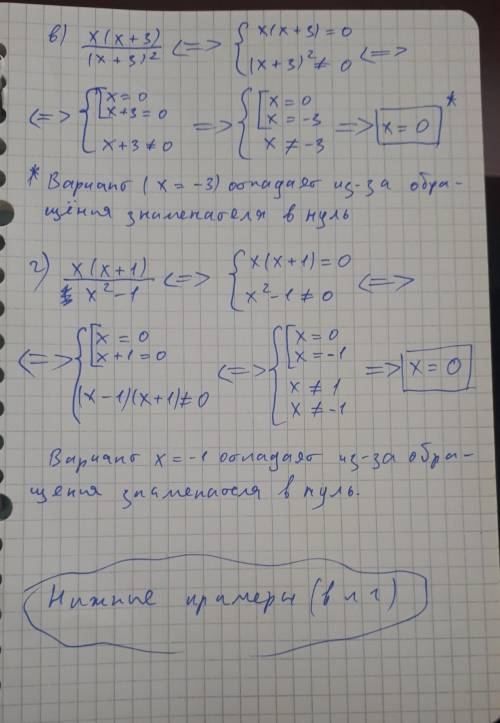 в) x(x+3)/(x+3)² <=> { x(x+3)=0 ; (x+3)²≠0 <=>
<=> { [ x=0 ; x+3=0 ; x+3≠0 => { [ x=0 ; x=-3 ; x≠-3 => x=0 *
* Вариант (x=-3) отпадает из-за обра-
щения знаменателя в нуль
г) x(x+1)/x²-1 <=> { x(x+1)=0 ; x²-1≠0 <=>
<=> { [ x=0 ; x+1=0 ; (x-1)(x+1)≠0 <=> { [ x=0 ; x=-1 ; x≠1 ; x≠-1 => x=0
Вариант x=-1 отпадает из-за обра-
щения знаменателя в нуль.
Нижние примеры (в и г)